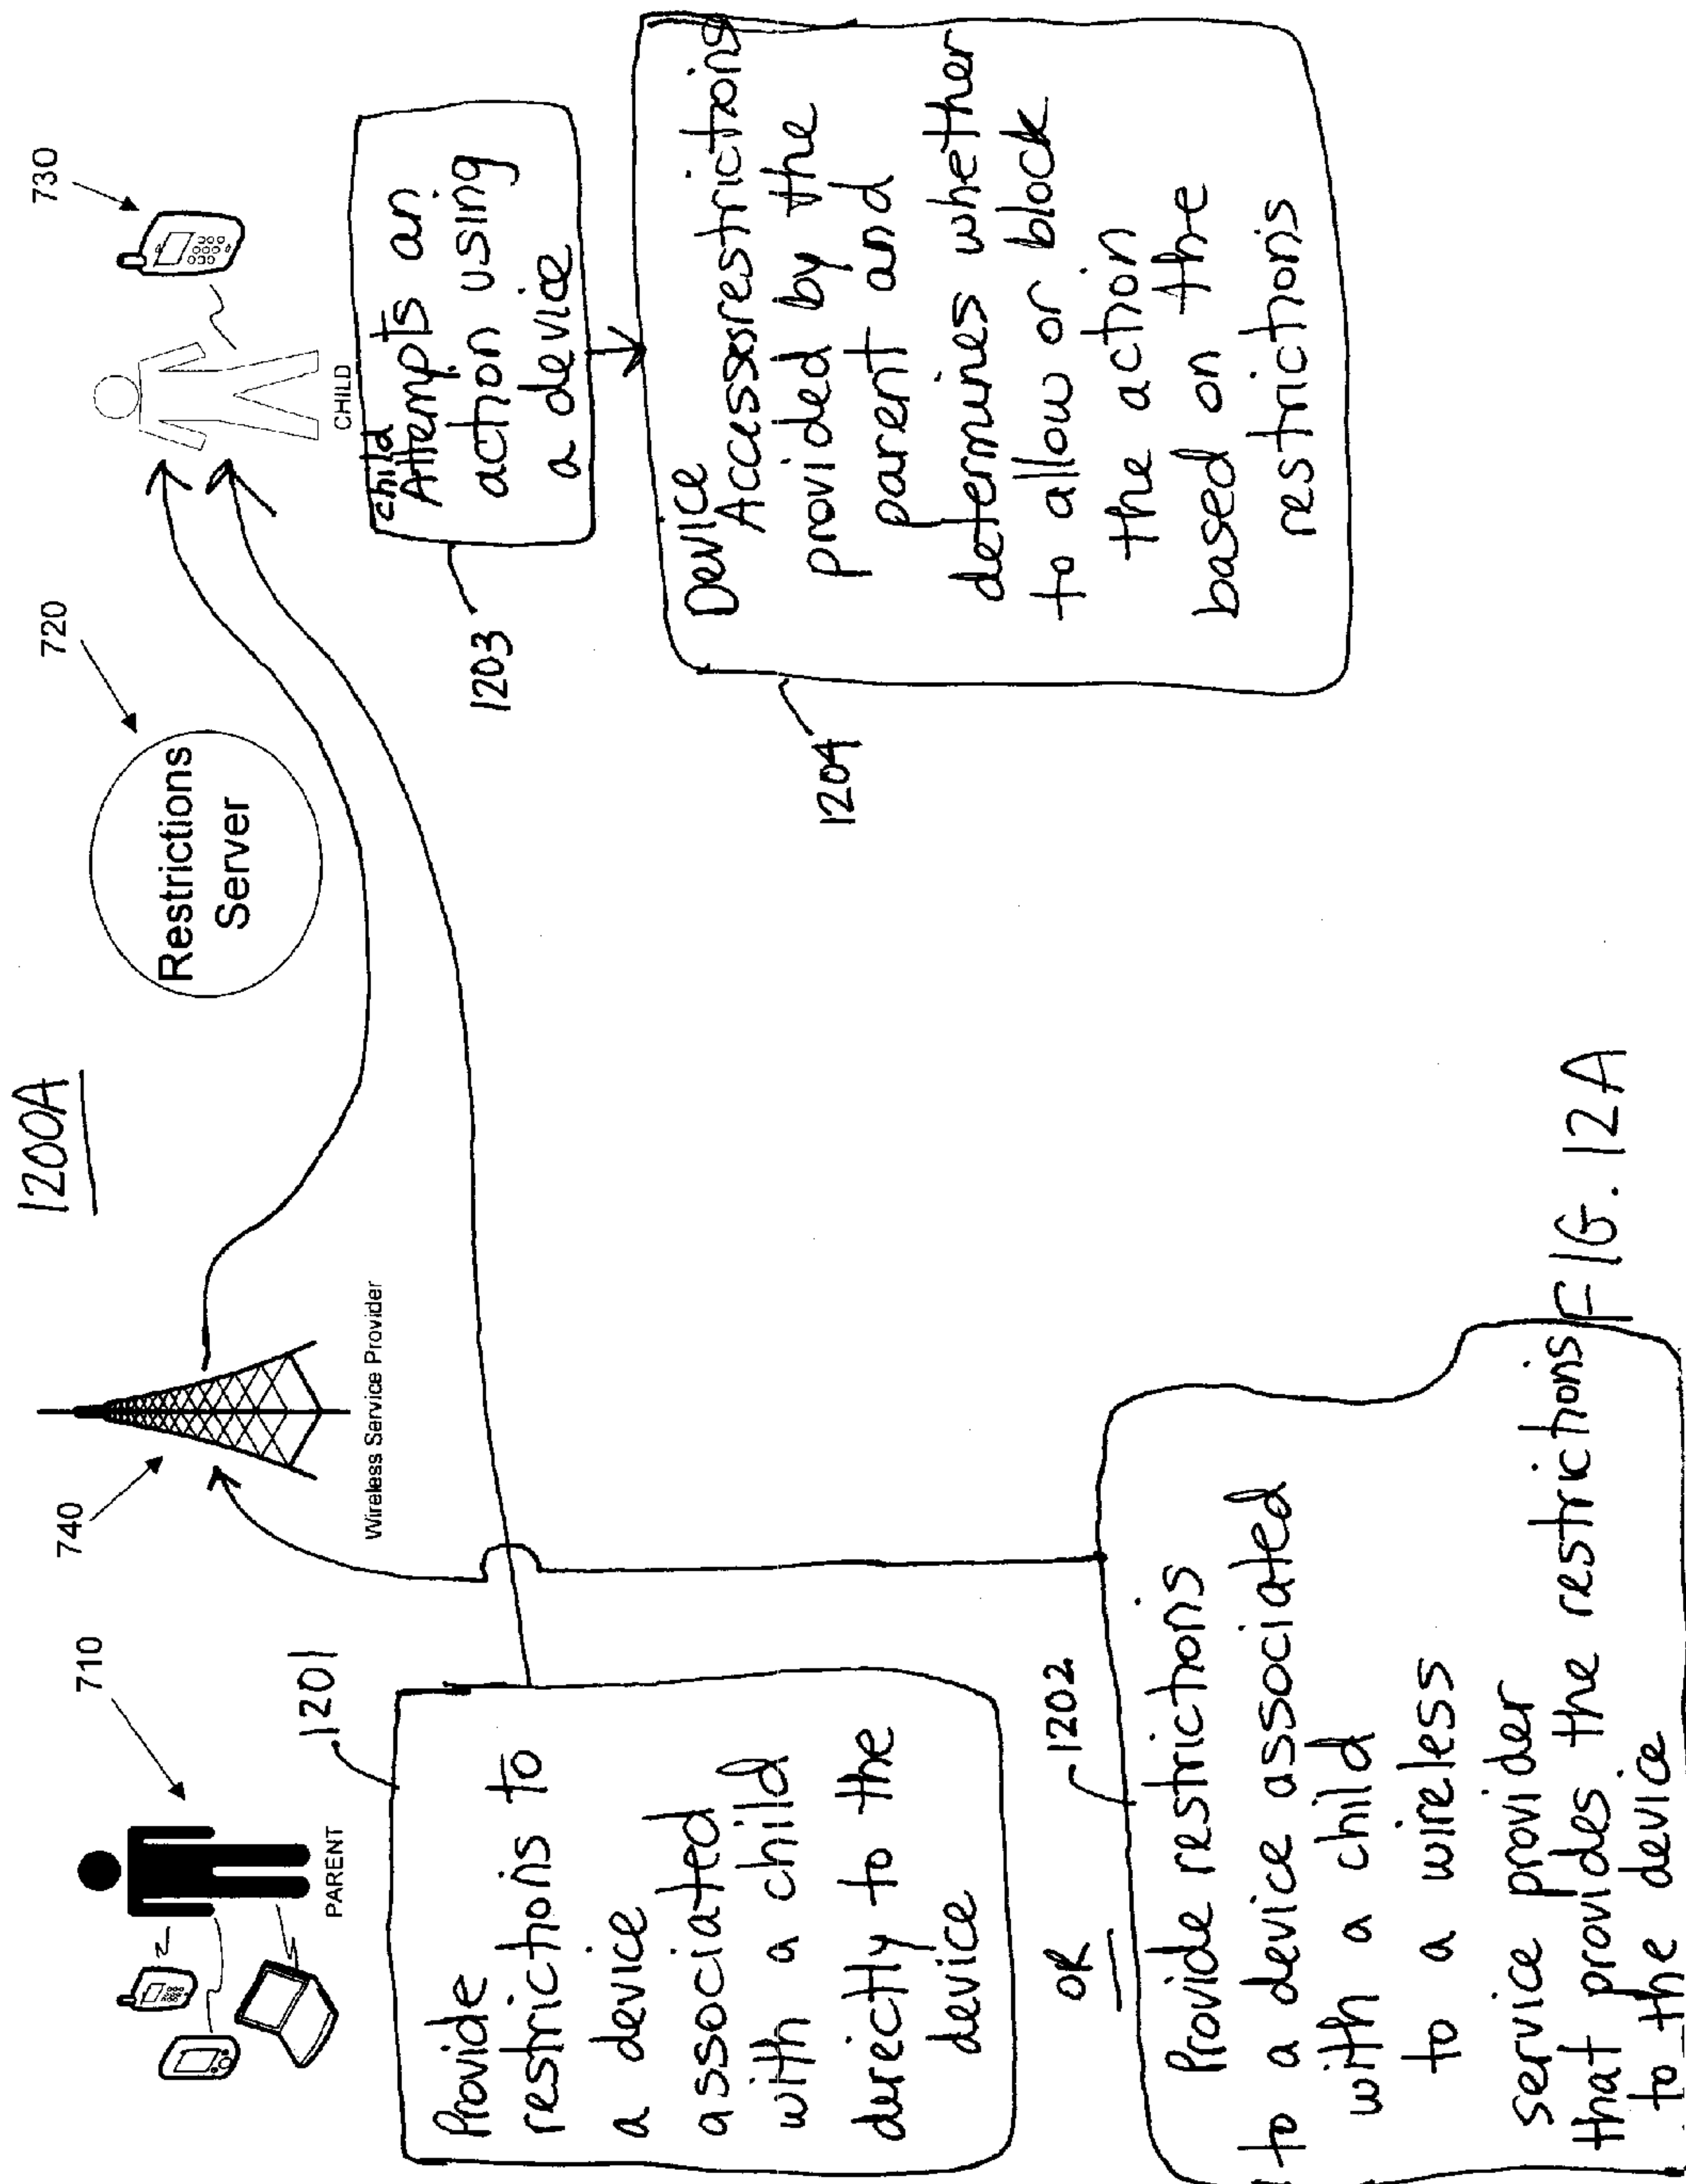 1200A
710
740
720
730
PARENT
Wireless Service Provider
Restrictions
Server
CHILD
1201
Provide
restrictions to
a device
associated
with a child
directly to the
device
OR
1202
Provide restrictions
to a device associated
with a child
to a wireless
service provider
that provides the restrictions
to the device
1203
child
Attempts an
action using
a device
1204
Device
Accesses restrictions
provided by the
parent and
determines whether
to allow or block
the action
based on the
restrictions
FIG. 12A